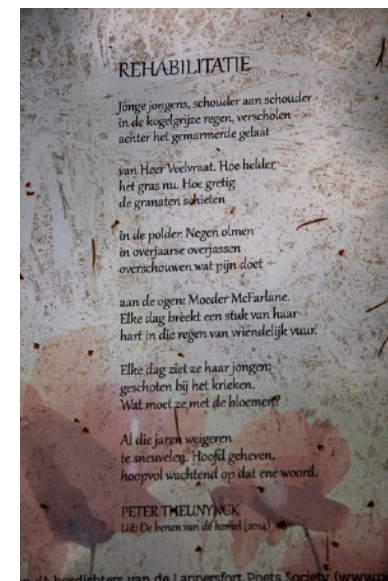 REHABILITATIE
Jonge jongens, schouder aan schouder
in de kogelgrijze regen, verscholen
achter het gemarmerde gelaat
van Heer Veelvraat. Hoe helder
het gras nu. Hoe gretig
de granaten schieten
in de polder. Negen olmen
in overjaarse overjassen
overschouwen wat pijn doet
aan de ogen: Moeder McFarlane.
Elke dag breekt een stuk van haar
hart in die regen van vriendelijk vuur.
Elke dag ziet ze haar jongen:
geschoten bij het krieken.
Wat moet ze met de bloemen?
Al die jaren weigeren
te sneuvelen. Hoofd geheven,
hoopvol wachtend op dat ene woord.
PETER THEUNYNCK
Uit: De benen van de hemel (2014)
dichters van de Lappersfort Poets Society (www